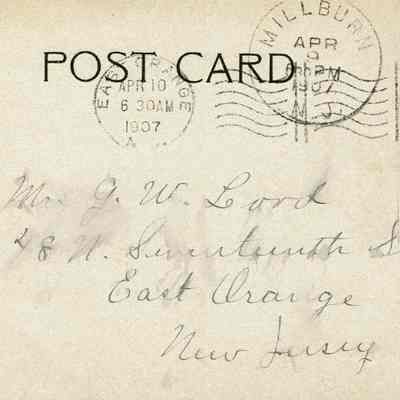 MILLBURN
APR
9
PM
1907
N.J.
POST CARD
EAST ORANGE
APR 10
6 30AM
1907
Mr. G. W. Lord
48 N. Seventeenth S
East Orange
New Jersey